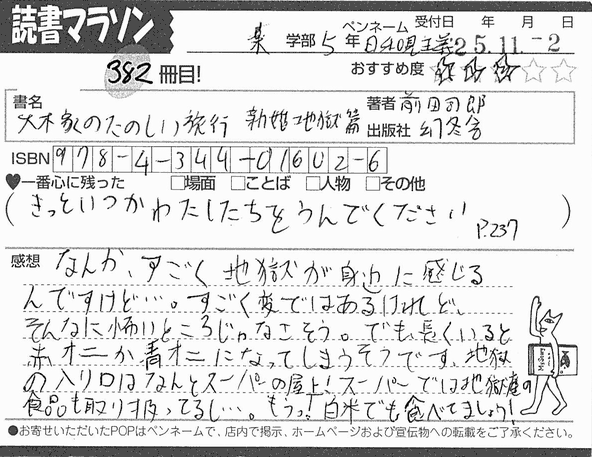 読書マラソン
382冊目!
薬 学部 5 年 ペンネーム 日和見主義 受付日 年 月 日
25.11.-2
おすすめ度 ★★★☆☆
書名 大木家のたのしい旅行 新婚地獄篇
著者 前田司郎
出版社 幻冬舎
ISBN 978-4-344-01602-6
♥一番心に残った □場面 □ことば □人物 □その他
(きっといつかわたしたちをうんでください P.237)
感想 なんか、すごく地獄が身近に感じる
んですけど…。すごく変ではあるけれど、
そんなに怖いところじゃなさそう。でも、長くいると
赤オニか青オニになってしまうそうです。地獄
の入り口はなんとスーパーの屋上!スーパーでは地獄産の
食品も取り扱ってるし…。もうっ!白米でも食べてましょう!
●お寄せいただいたPOPはペンネームで、店内で掲示、ホームページおよび宣伝物への転載をご了承ください。